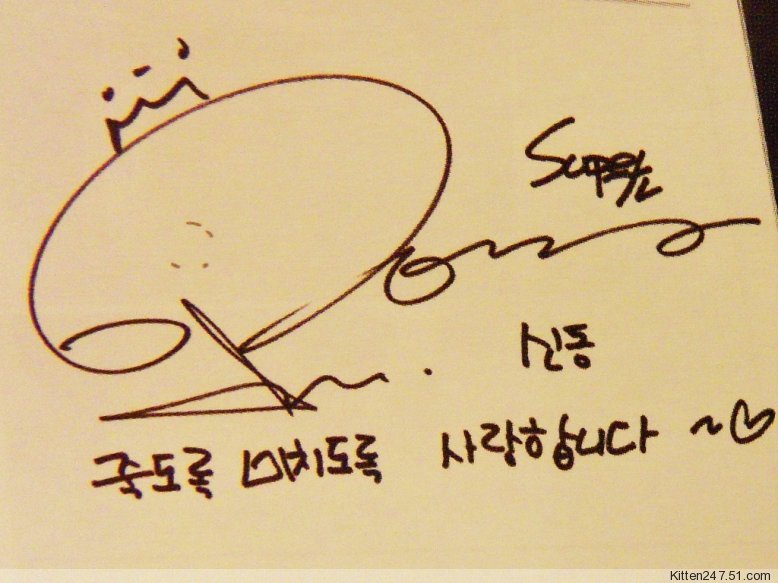 Super
신동
죽도록 미치도록 사랑합니다 ~♡
Kitten247.51.com